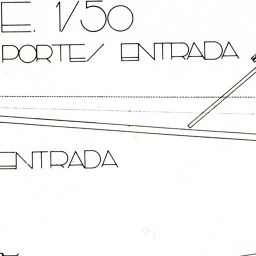 E. 1/50
PORTE/ ENTRADA
ENTRADA